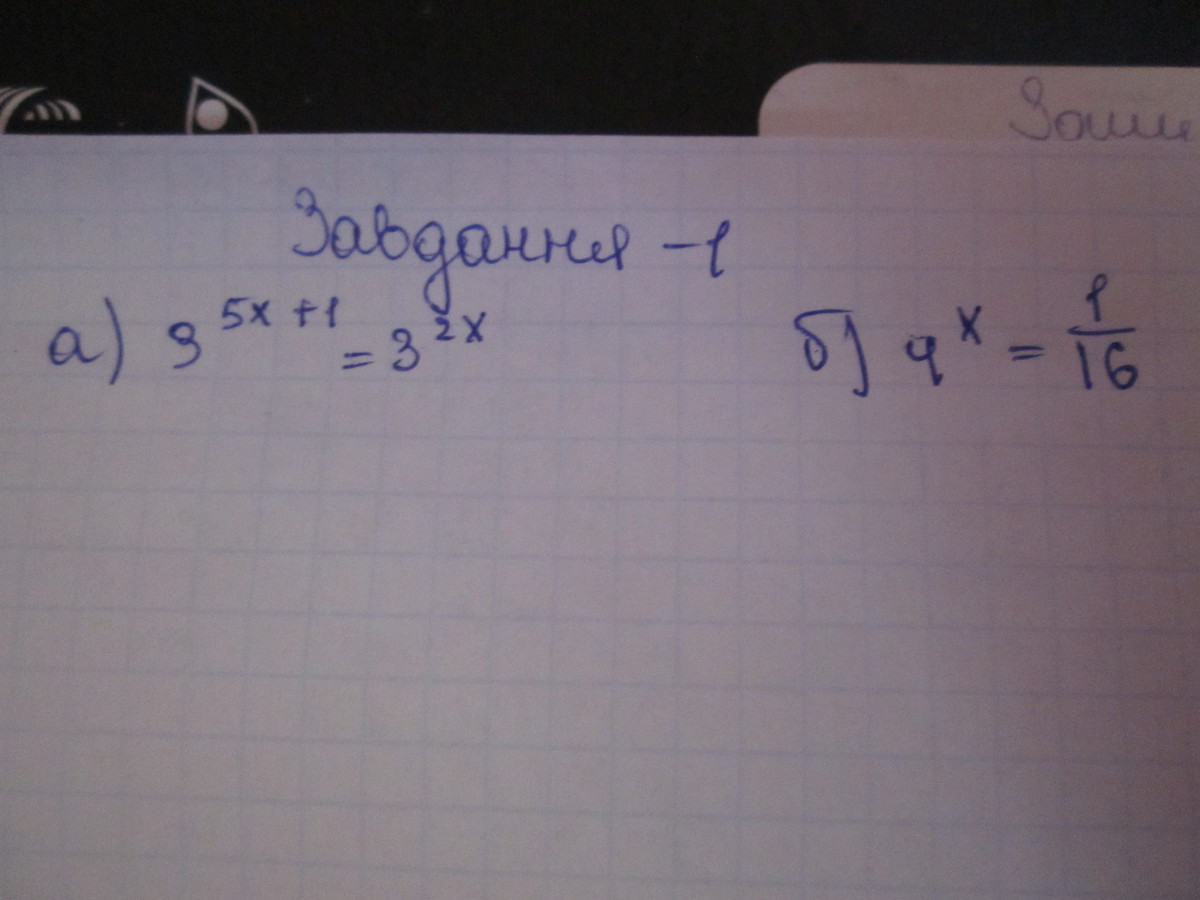 Завдання -1
а) 3^{5x+1} = 3^{2x} б) 4^x = \frac{1}{16}